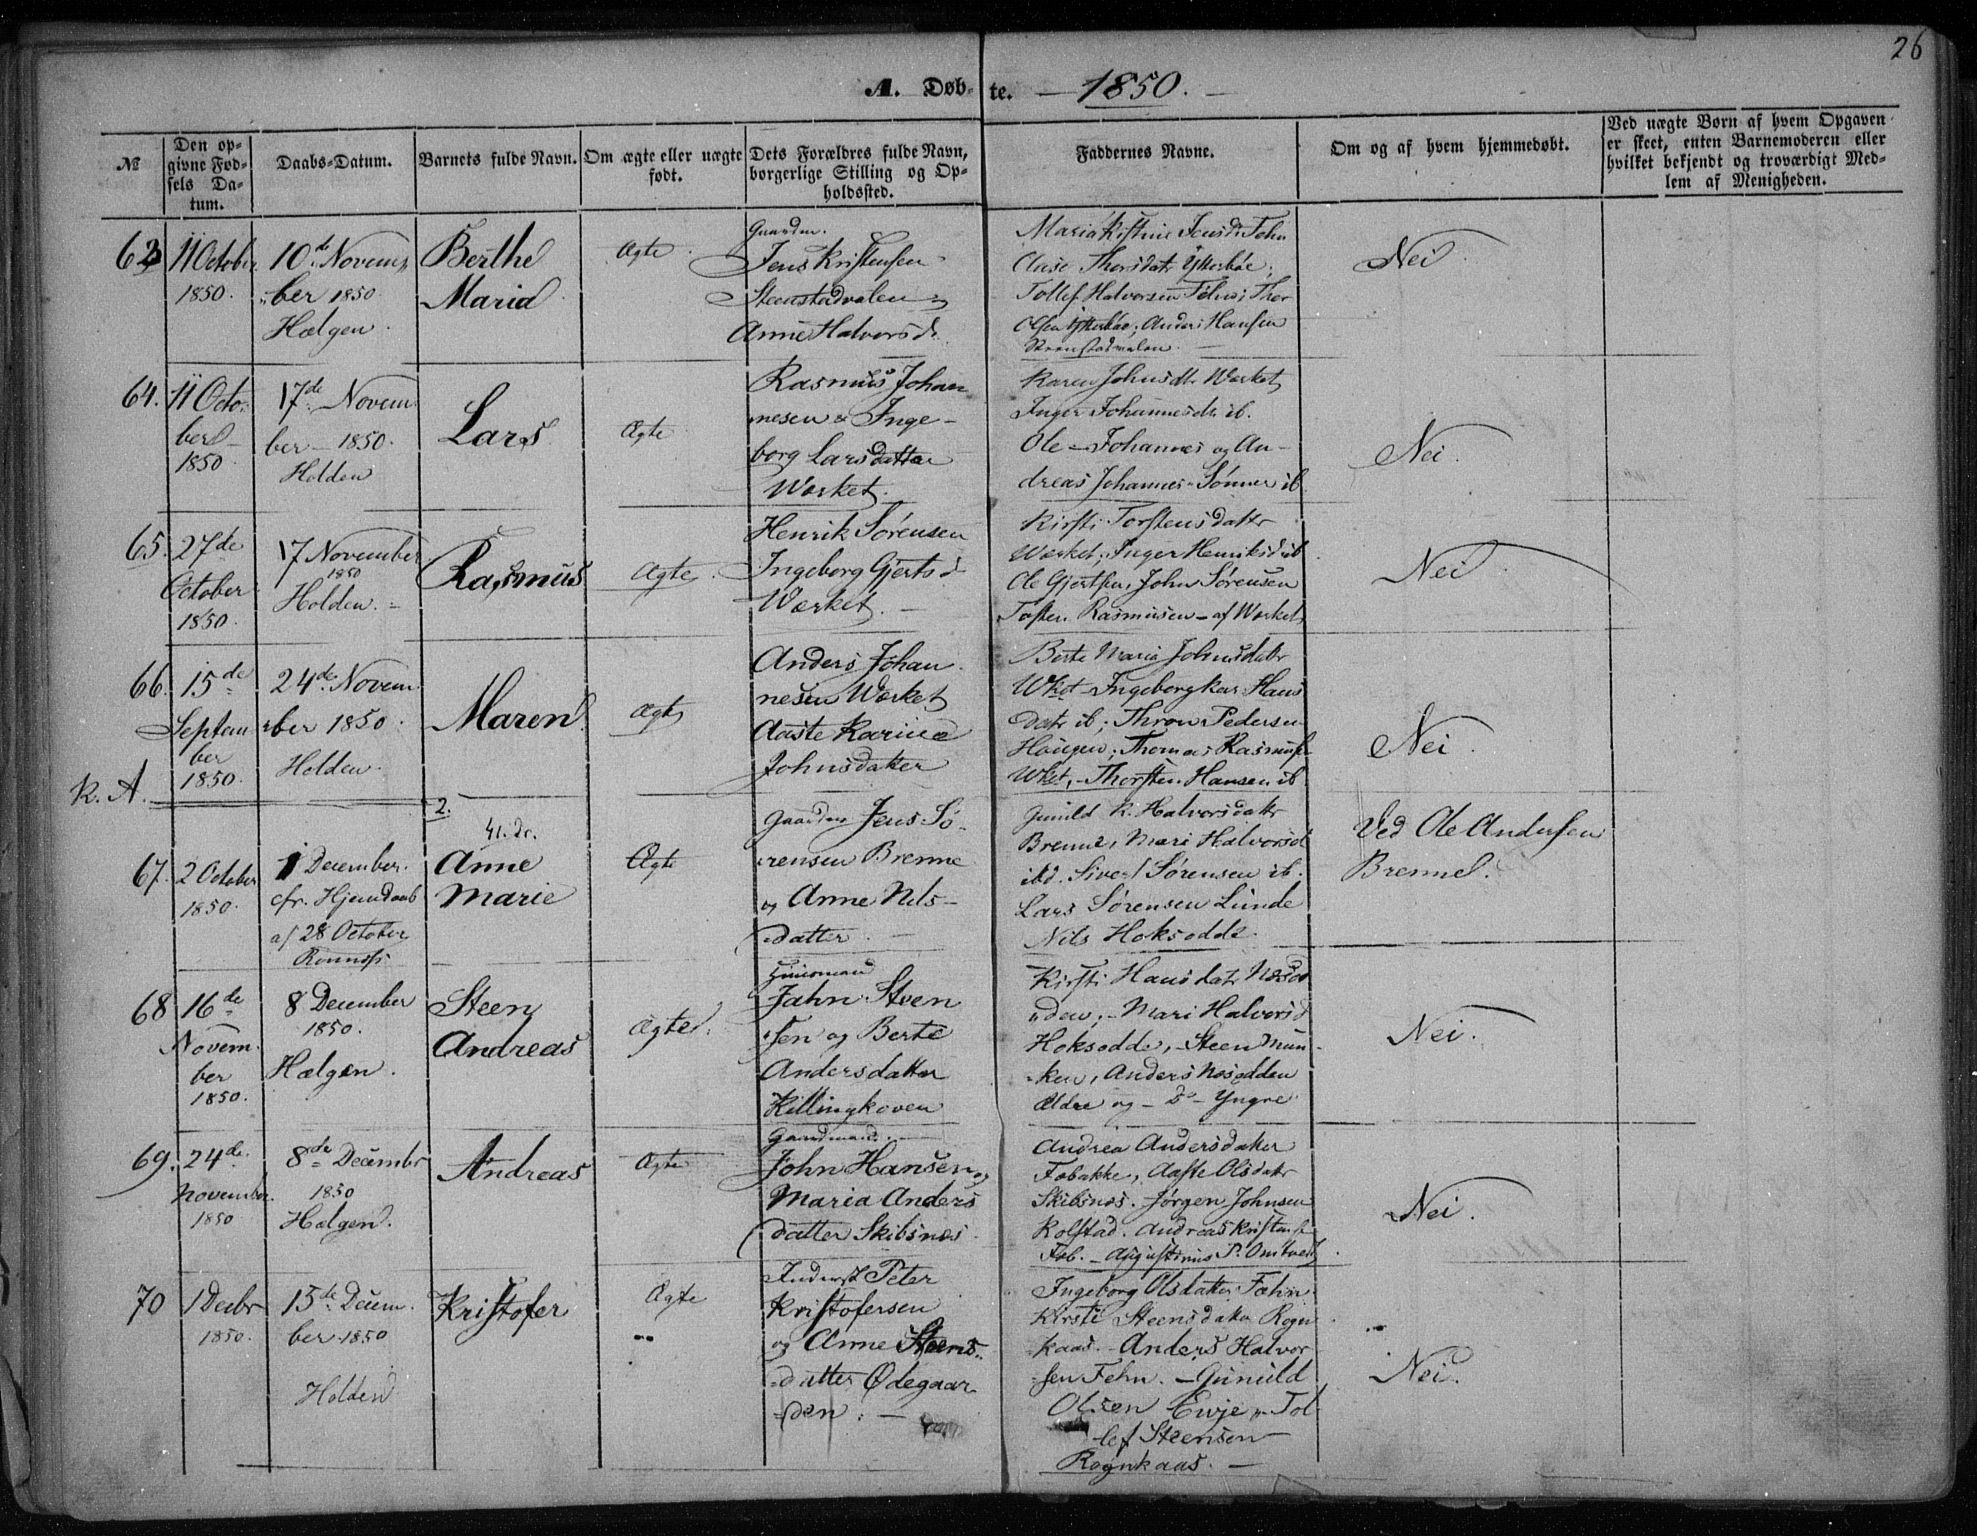 26
A. Døbte. – 1850. –
№
Den opgivne Fødsels Datum.
Daabs-Datum.
Barnets fulde Navn.
Om ægte eller uægte født.
Dets Forældres fulde Navn, borgerlige Stilling og Opholdssted.
Faddernes Navne.
Om og af hvem hjemmedøbt.
Ved uægte Børn af hvem Opgaven er skeet, enten Barnemoderen eller hvilket bekjendt og troværdigt Medlem af Menigheden.
63
11 October
1850.
10de Novem
ber 1850
Hælgen.
Berthe
Maria
Ægte
Gaardm.
Jens Kristensen
Steenstadvalen
Anne Halvorsd.
Maria Kistine Jensdr Fehn
Aase Thorsdatr Ytterbøe,
Tollef Halvorsen Fehn, Thor
Olsen Ytterbøe, Anders Hansen
Steenstadvalen
Nei
64.
11 Octo
ber
1850.
17de Novem
ber – 1850.
Holden
Lars
Ægte
Rasmus Johan
nesen & Inge-
borg Larsdatter
Værket.
Karen Johnsdtr Wærket
Inger Johannesdtr ib.
Ole – Johannes og An-
dreas Johannes-Sønner ib
Nei.
65.
27de
October
1850.
17 November
1850
Holden.
Rasmus
Ægte.
Henrik Sørensen
Ingeborg Gjertsd
Værket. –
Kirsti Torstensdatr
Wærket, Inger Henriksd ib
Ole Gjertsen, John Sørensen
Tosten Rasmusen – af Wærket
Nei
66.
15de
Septem
ber
1850.
24de Novem
ber 1850.
Holden.
Maren
Ægte
Anders Johan
nesen Værket
Aaste Karine
Johnsdatter
Berte Maria Johnsdatr
Wket – Ingeborg Kar. Hans
datr ib, Thron Pedersen
Haugen, Thomas Rasmuss
Wket, – Thorsten Hansen ib
Nei.
K. A.
2.
67.
2 October
1850.
1 December.
cfr. Hjemdaab
af 28 October
Romnæs
Anne
Marie
Ægte
Gaardm Jens Sø-
rensen Brenne
og Anne Nils-
datter –
Gunild K. Halvorsdatr
Brenne, Mari Halvorsd
ibd. Sivert Sørensen ib.
Lars Sørensen Lunde
Nils Hoksodde.
Ved Ole Andersen
Brenne.
68
16de
Novem
ber
1850.
8 December
1850.
Hælgen.
Steen
Andreas
Ægte.
Huusmand
Jahn Steen
sen og Berte
Andersdatter
Killingkoven
Kirsti Hansdatr Næsod
den, – Mari Halvorsd
Hoksodde, – Steen Mun
ken, Anders Næsodden
Ældre og – Do – Yngre
Nei.
69.
24de
November
1850
8de Decembr
1850
Hælgen.
Andreas
Ægte
Gaardmand.
John Hansen og
Maria Anders
datter Skibsnæs.
Andrea Andersdatter
Febakke, Aaste Olsdatr
Skibsnæs. Jørgen Johnsen
Rolstad. Andreas Kristens
Feb. – Augustinus P. Omtvedt.
Nei.
70
1 Decbr
1850.
15de Decem.
ber 1850
Holden
Kristofer
Ægte
Inderst Peter
Kristofersen
og Anne Steens
datter Ødegaar
den. –
Ingeborg Olsdatter Fæhn
Kirsti Steensdatter Rogn
kaas. – Anders Halvor
sen Fehn. – Gunuld
Olsen Ewje, Tol
lef Steensen
Rognkaas. –
Nei.